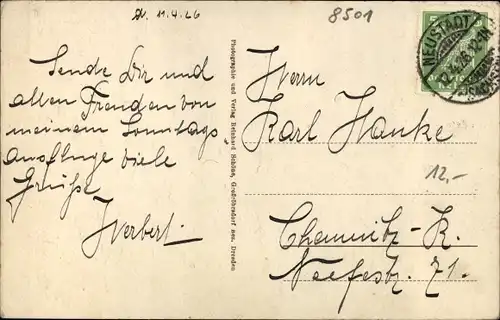 d. 11.4.26
8501
Sende Dir und
allen Freuden von
meinem Sonntags
ausfluge viele
Grüße
Herbert.
Photographie und Verlag Reinhard Schöne, Großröhrsdorf Dresden
NEUSTADT
Herrn
Karl Hanke
12,-
Chemnitz-K.
Neefestr. 71.